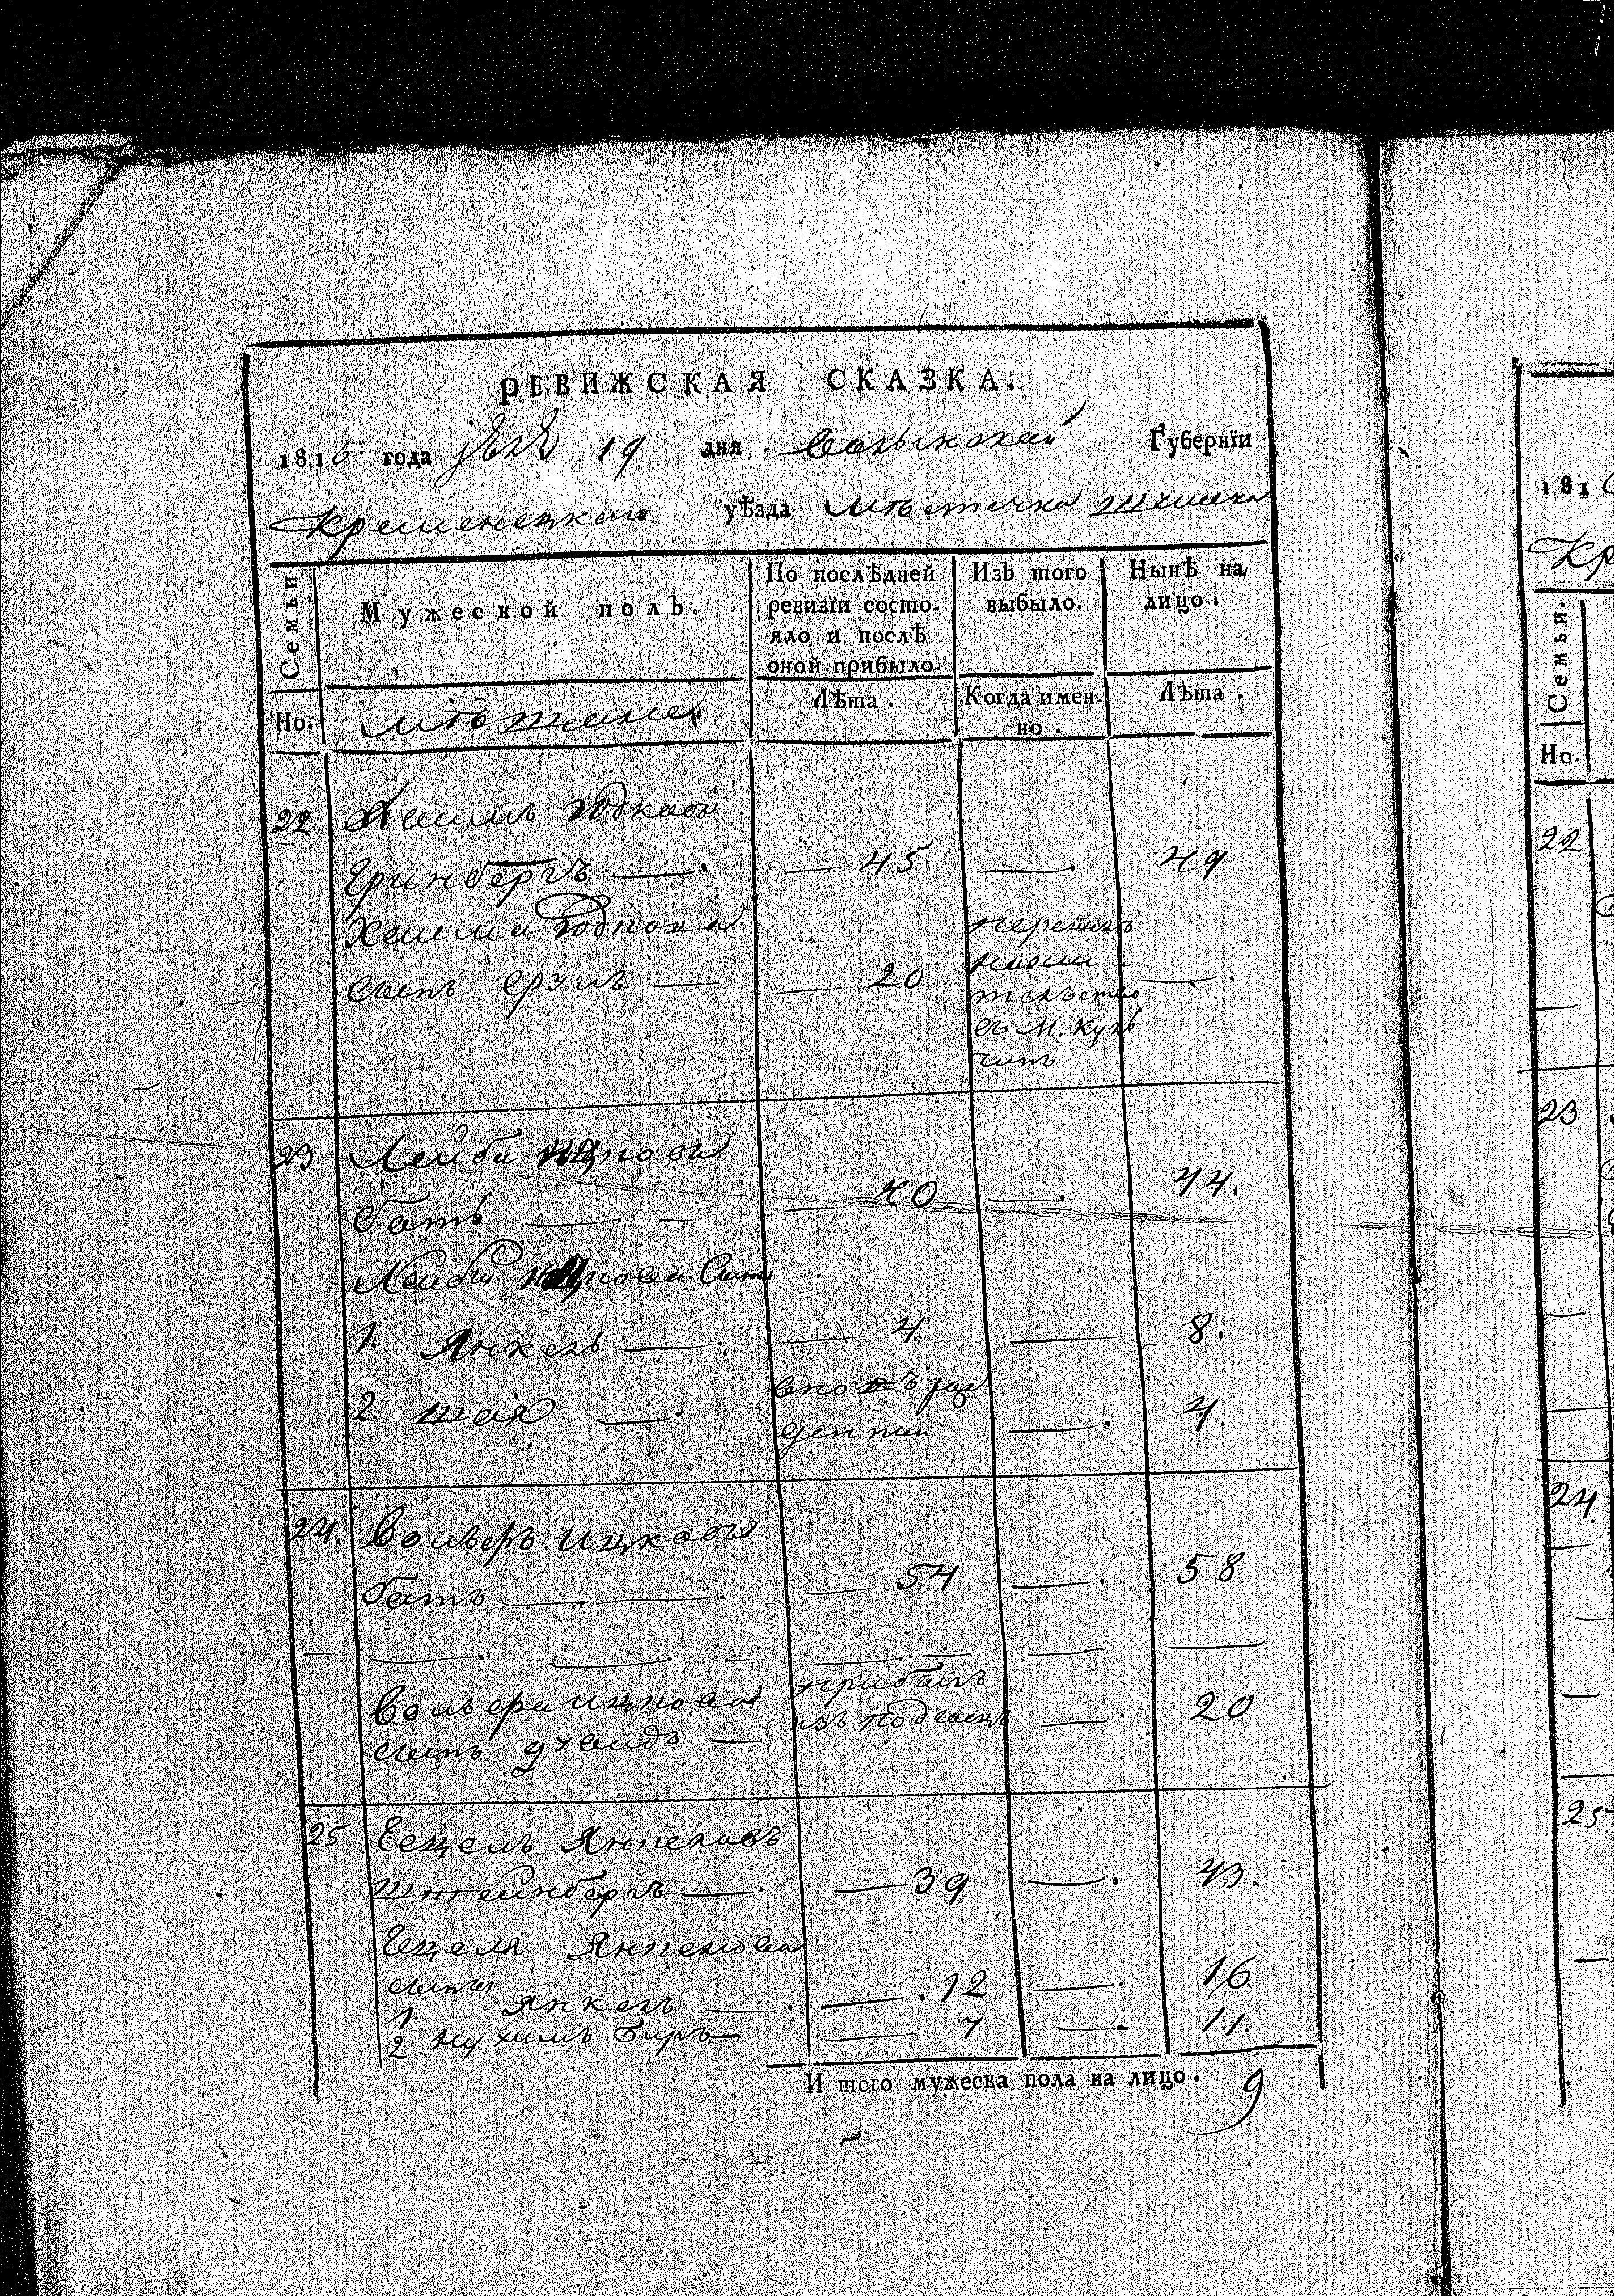 РЕВИЖСКАЯ СКАЗКА.
1816 года 19 дня Волынской Губернїи
Кременецкаго уѣзда Мѣстечка
Семьи
Мужеской полъ.
По послѣдней ревизїи состо-
яло и послѣ
оной прибыло.
Изъ того
выбыло.
Нынѣ на
лицо.
Но.
мѣщане
Лѣта.
Когда имен-
но.
Лѣта.
22 Хаимъ Юдковъ
Гринбергъ — — 45 — 49
Хаима Юдкова
сынъ Срулъ — — 20 — .
перешелъ
на жи-
тельство
въ М.
23 Лейба Ицковъ
Батъ — — — 40 — 44.
Лейби Ицкова Сыны
1. Янкель — — 4 — 8.
2. Шая — вновь рож
денный — 4.
24. Вольфъ Ицковъ
Батъ — — — 54 — 58
Вольфа Ицкова
сынъ Дувидъ —
прибылъ
изъ — 20
25 Гецель Янкелевъ
Штейнбергъ — — 39 — 43.
Гецеля Янкелева
сыны
1. Янкель — — 12 — 16
2 Нухимъ Беръ — 7 — 11.
И того мужеска пола на лицо. 9
1816
Кр
Семья.
Но.
22
23
24.
25